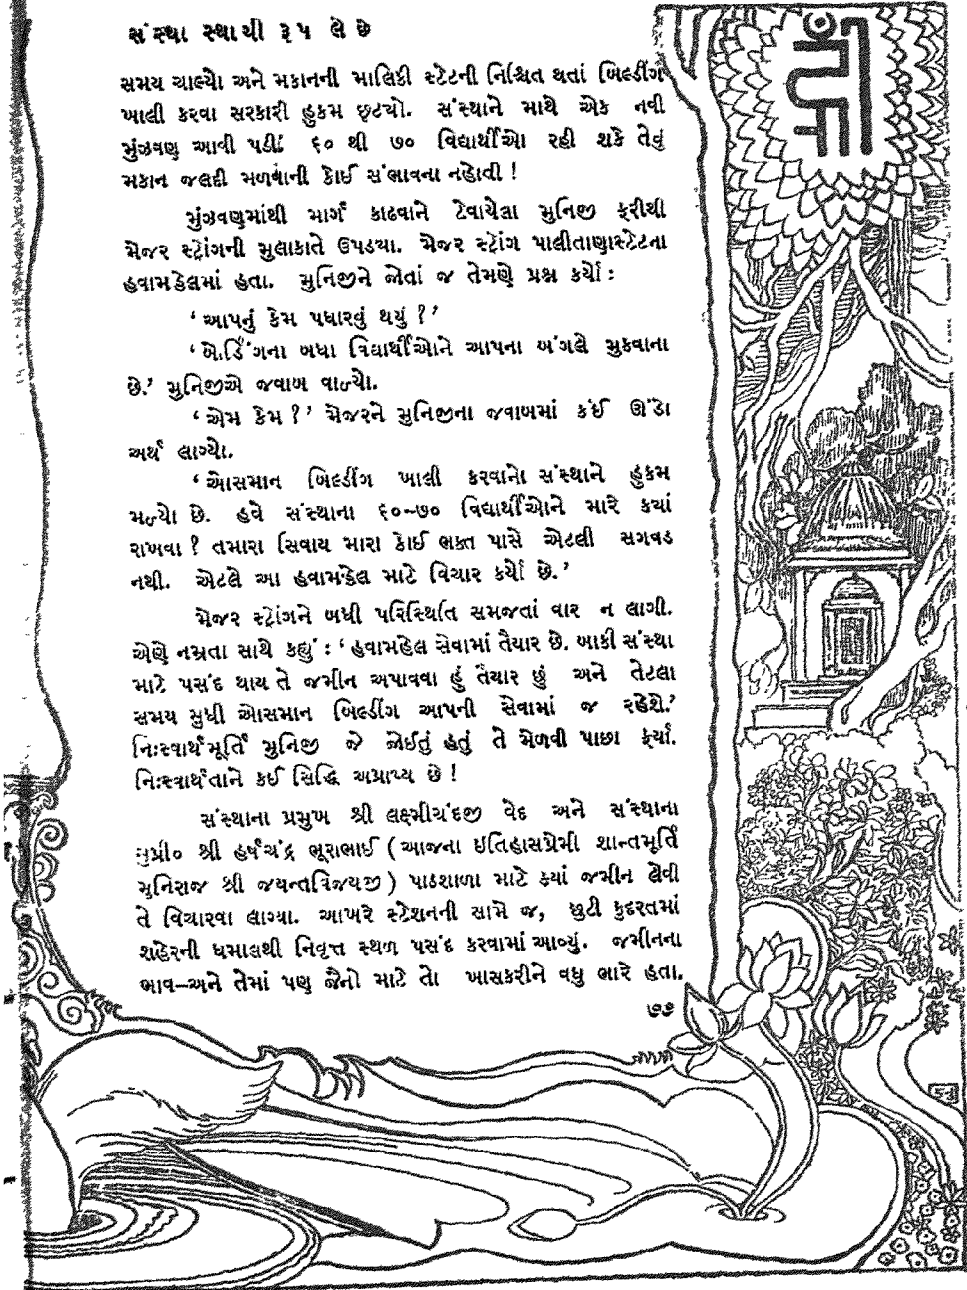 સંસ્થા સ્થાયી રૂપ લે છે
સમય ચાલ્યો અને મકાનની માલિકી સ્ટેટની નિશ્ચિત થતાં બિલ્ડીંગ
ખાલી કરવા સરકારી હુકમ છૂટયો. સંસ્થાને માથે એક નવી
મુંઝવણ આવી પડી: ૬૦ થી ૭૦ વિદ્યાર્થીઓ રહી શકે તેવું
મકાન જલદી મળવાની કોઈ સંભાવના નહોતી !
મુંઝવણમાંથી માર્ગ કાઢવાને ટેવાયેલા મુનિજી ફરીથી
મેજર સ્ટ્રોંગની મુલાકાતે ઉપડયા. મેજર સ્ટ્રોંગ પાલીતાણાસ્ટેટના
હવામહેલમાં હતા. મુનિજીને જોતાં જ તેમણે પ્રશ્ન કર્યો :
‘ આપનું કેમ પધારવું થયું ?’
‘બોર્ડિંગના બધા વિદ્યાર્થીઓને આપના બંગલે મુકવાના
છે.’ મુનિજીએ જવાબ વાળ્યો.
‘ એમ કેમ ?’ મેજરને મુનિજીના જવાબમાં કંઈ ઊંડો
અર્થ લાગ્યો.
‘ ઓસમાન બિલ્ડીંગ ખાલી કરવાનો સંસ્થાને હુકમ
મળ્યો છે. હવે સંસ્થાના ૬૦–૭૦ વિદ્યાર્થીઓને મારે કયાં
રાખવા ? તમારા સિવાય મારા કોઈ ભક્ત પાસે એટલી સગવડ
નથી. એટલે આ હવામહેલ માટે વિચાર કર્યો છે.’
મેજર સ્ટ્રોંગને બધી પરિસ્થિતિ સમજતાં વાર ન લાગી.
એણે નમ્રતા સાથે કહ્યું : ‘ હવામહેલ સેવામાં તૈયાર છે. બાકી સંસ્થા
માટે પસંદ થાય તે જમીન અપાવવા હું તૈયાર છું અને તેટલા
સમય સુધી ઓસમાન બિલ્ડીંગ આપની સેવામાં જ રહેશે.’
નિઃસ્વાર્થમૂર્તિ મુનિજી જે જોઈતું હતું તે મેળવી પાછા ફર્યા.
નિઃસ્વાર્થતાને કઈ સિદ્ધિ અપ્રાપ્ય છે !
સંસ્થાના પ્રમુખ શ્રી લક્ષ્મીચંદજી વેદ અને સંસ્થાના
સુપ્રી૦ શ્રી હર્ષચંદ્ર ભૂરાભાઈ ( આજના ઇતિહાસપ્રેમી શાન્તમૂર્તિ
મુનિરાજ શ્રી જયન્તવિજયજી ) પાઠશાળા માટે કયાં જમીન લેવી
તે વિચારવા લાગ્યા. આખરે સ્ટેશનની સામે જ, છુટી કુદરતમાં
શહેરની ધમાલથી નિવૃત્ત સ્થળ પસંદ કરવામાં આવ્યું. જમીનના
ભાવ–અને તેમાં પણ જૈનો માટે તો ખાસકરીને વધુ ભારે હતા.
૭૭